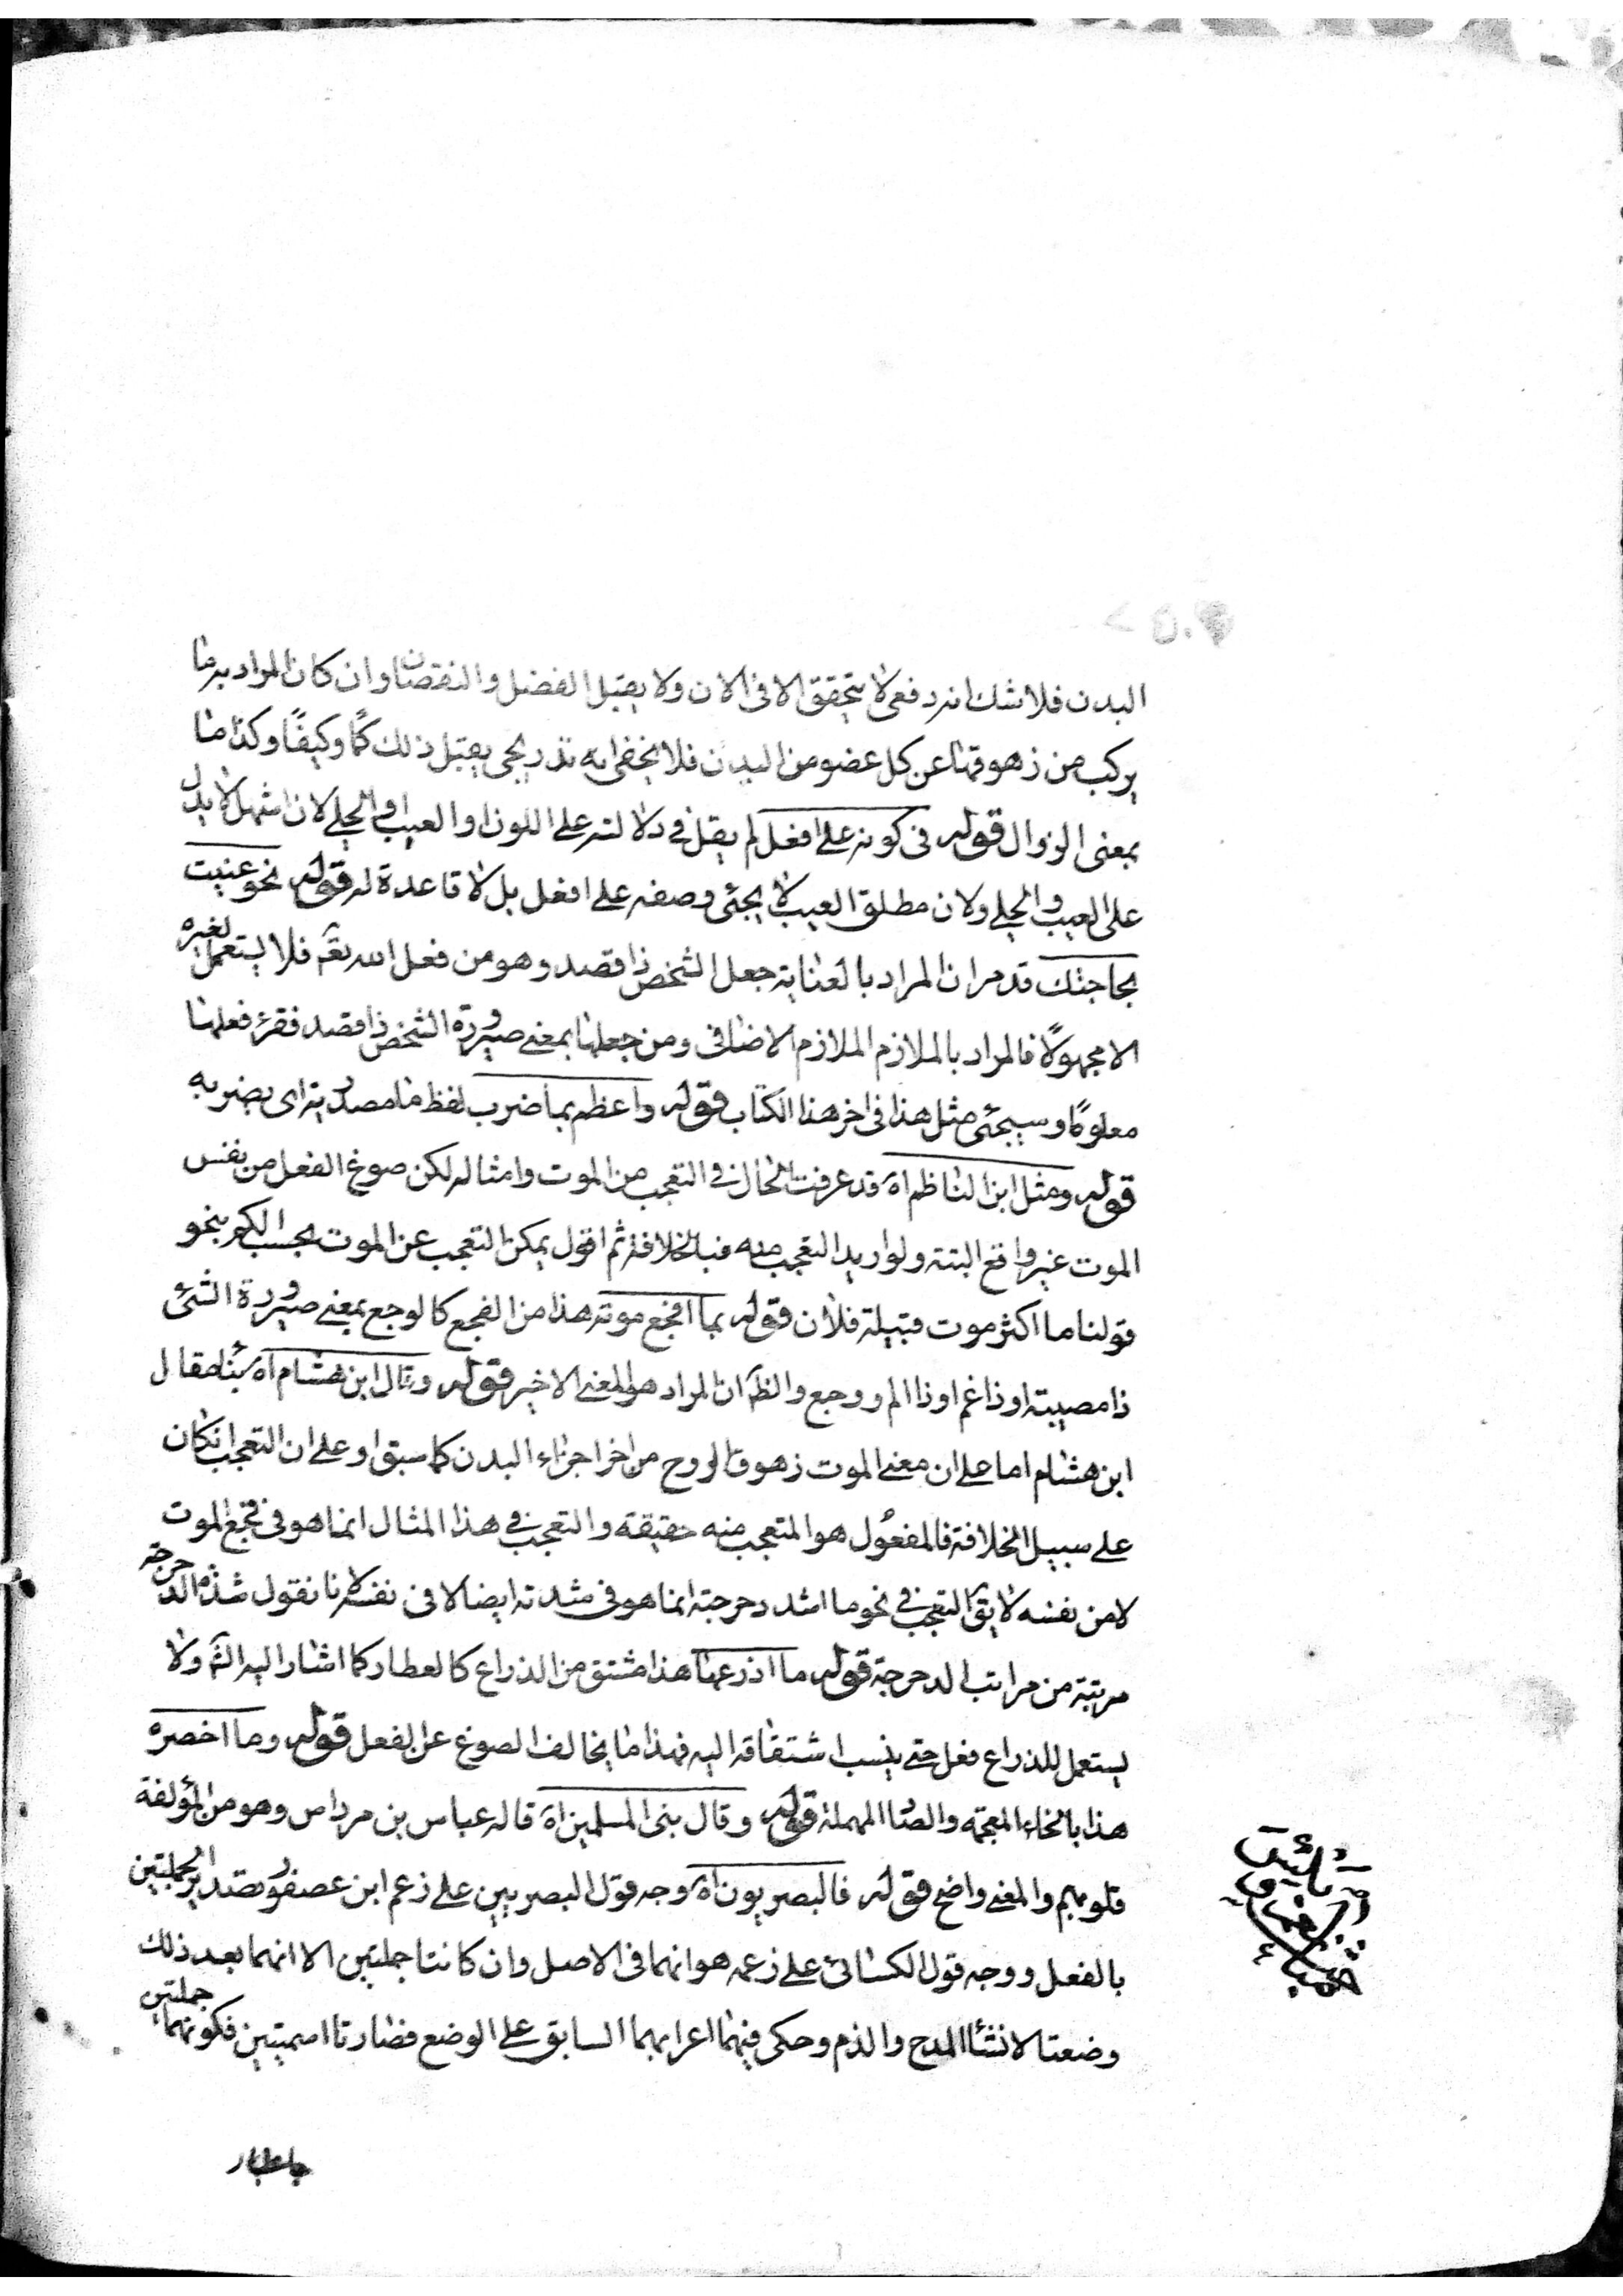 البدن فلا شك انه دفعى لا يتحقق الا فى الان ولا يقبل الفضل والنقصان وان كان المراد به ما
يركب من زهوقها عن كل عضو من البدن فلا يخفى انه تدريجى يقبل ذلك كمًا وكيفًا وكذا ما
بمعنى الزوال قوله فى كونه على افعل لم يقل فى دلالته على اللون او العيب او الحلى لان اشهل لا يدل
على العيب والحلى ولان مطلق العيب لا يجئى وصفه على افعل بل لا قاعدة له قوله نحو عنيت
بحاجتك قد مر ان المراد بالعناية جعل الشخص ذا قصد وهو من فعل الله تعه فلا يستعمل لغيره
الا مجهولًا فالمراد بالملازم الملازم الاضافى ومن جعلها بمعنى صيرورة الشخص ذا قصد فقرئ فعلها
معلومًا وسيجئى مثل هذا فى اخر هذا الكتاب قوله واعظم بما ضرب لفظ ما مصدرية اى بضربه
قوله ومثل ابن الناظم اه قد عرفت الحال فى التعجب من الموت وامثاله لكن صوغ الفعل من نفس
الموت غير واقع البتة ولو اريد التعجب منه فبالخلافة ثم اقول يمكن التعجب عن الموت بحسب الكم بنحو
قولنا ما اكثر موت قبيلة فلان قوله بما افجع موته هذا من الفجع كالوجع بمعنى صيرورة الشئى
ذا مصيبة او ذا غم او ذا الم ووجع والظ ان المراد هو المعنى الاخير قوله وقال ابن هشام اه بناء مقال
ابن هشام اما على ان معنى الموت زهوق الروح من اخر اجزاء البدن كما سبق او على ان التعجب ان كان
على سبيل الخلافة فالمفعول هو المتعجب منه حقيقة والتعجب فى هذا المثال انما هو فى فجع الموت
لا من نفسه لا يق التعجب فى نحو ما اشد دحرجته انما هو فى شدته ايضا لا فى نفسه لانا نقول شدة الدحرجة
مرتبة من مراتب الدحرجة قوله ما اذرعها هذا مشتق من الذراع كالعطار كما اشار اليه الشم ولا
يستعمل للذراع فعل حتى ينسب اشتقاقه اليه فهذا ما يخالف الصوغ عن الفعل قوله وما اخصره
هذا بالخاء المعجمه والصاد المهملة قوله وقال نبى المسلمين اه قاله عباس بن مرداس وهو من المؤلفة
قلوبهم والمعنى واضح قوله فالبصريون اه وجه قول البصريين على زعم ابن عصفور تصدير الجملتين
بالفعل ووجه قول الكسائى على زعمه هو انهما فى الاصل وان كانتا جملتين الا انهما بعد ذلك
وضعتا لانشاء المدح والذم وحكى فيهما اعرابهما السابق على الوضع فصارتا اسميتين فكونهما جملتين